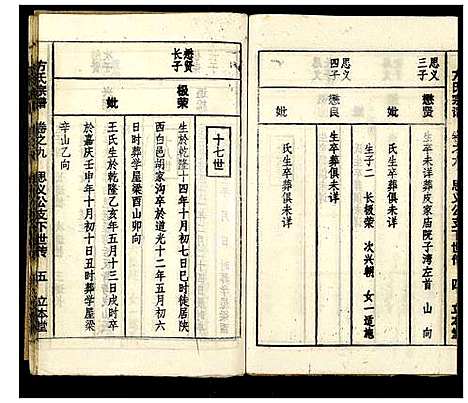 思义
三子
懋贤
生卒未详葬皮家庙院子湾左首 山 向
妣
氏生卒葬俱未详
生子二 长极荣 次兴朝 女一适施
思义
四子
懋良
生卒葬俱未详
妣
氏生卒葬俱未详
四 立本堂
方氏宗谱 卷之九 思义公支下世传 五 立本堂
十七世
懋贤
长子
极荣
生於乾隆十四年十月初七日巳时徒居陕
西白邑胡家沟卒於道光十二年五月初六
日时葬学屋梁酉山卯向
妣
王氏生於乾隆乙亥年五月十三日戌时卒
於嘉庆壬申年十月初十日丑时葬学屋梁
辛山乙向